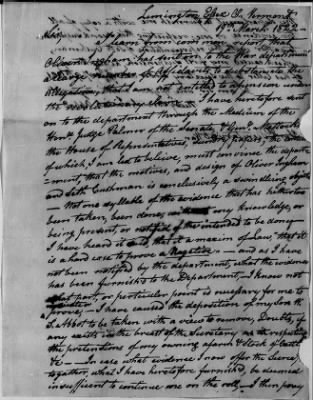 Lemington Essex Co. Vermont
19 March 1822
Sir
I learn from common report, that
Oliver Ingham has sent on to the War department
a large number of affidavits to substantiate the
allegation, that I am not entitled to a pension under
the revolutionary claim. I have heretofore sent
on to the department through the Medium of the
Honl Judge Palmer of the Senate & Genl
the House of Representatives, papers, the
of which, I am led to believe, must convince the depart-
-ment, that the motives, and design of Oliver Ingham
and Seth Cushman is conclusively a swindling object
Not one syllable of the evidence that has hitherto
been taken, been done, with my knowledge, or
being present, or notified of the intended to be done
I have heard it said that it a maxim of Law, that it
is a hard case to prove a Negative — and as I have
not been notified by the department, what the evidence
has been furnished to the Department, I know not
what part, or particular point is necessary for me to
prove; — I have caused the deposition of my Son the
to be taken with a view to remove, Doubts, if
any exists in the breast of the Secretary as respecting
the pretensions of my owning a farm & Stock of Cattle
&c — In case what evidence I now offer the Secre
together what I have heretofore furnished, be deemed
insufficient to continue me on the roll, I then pray